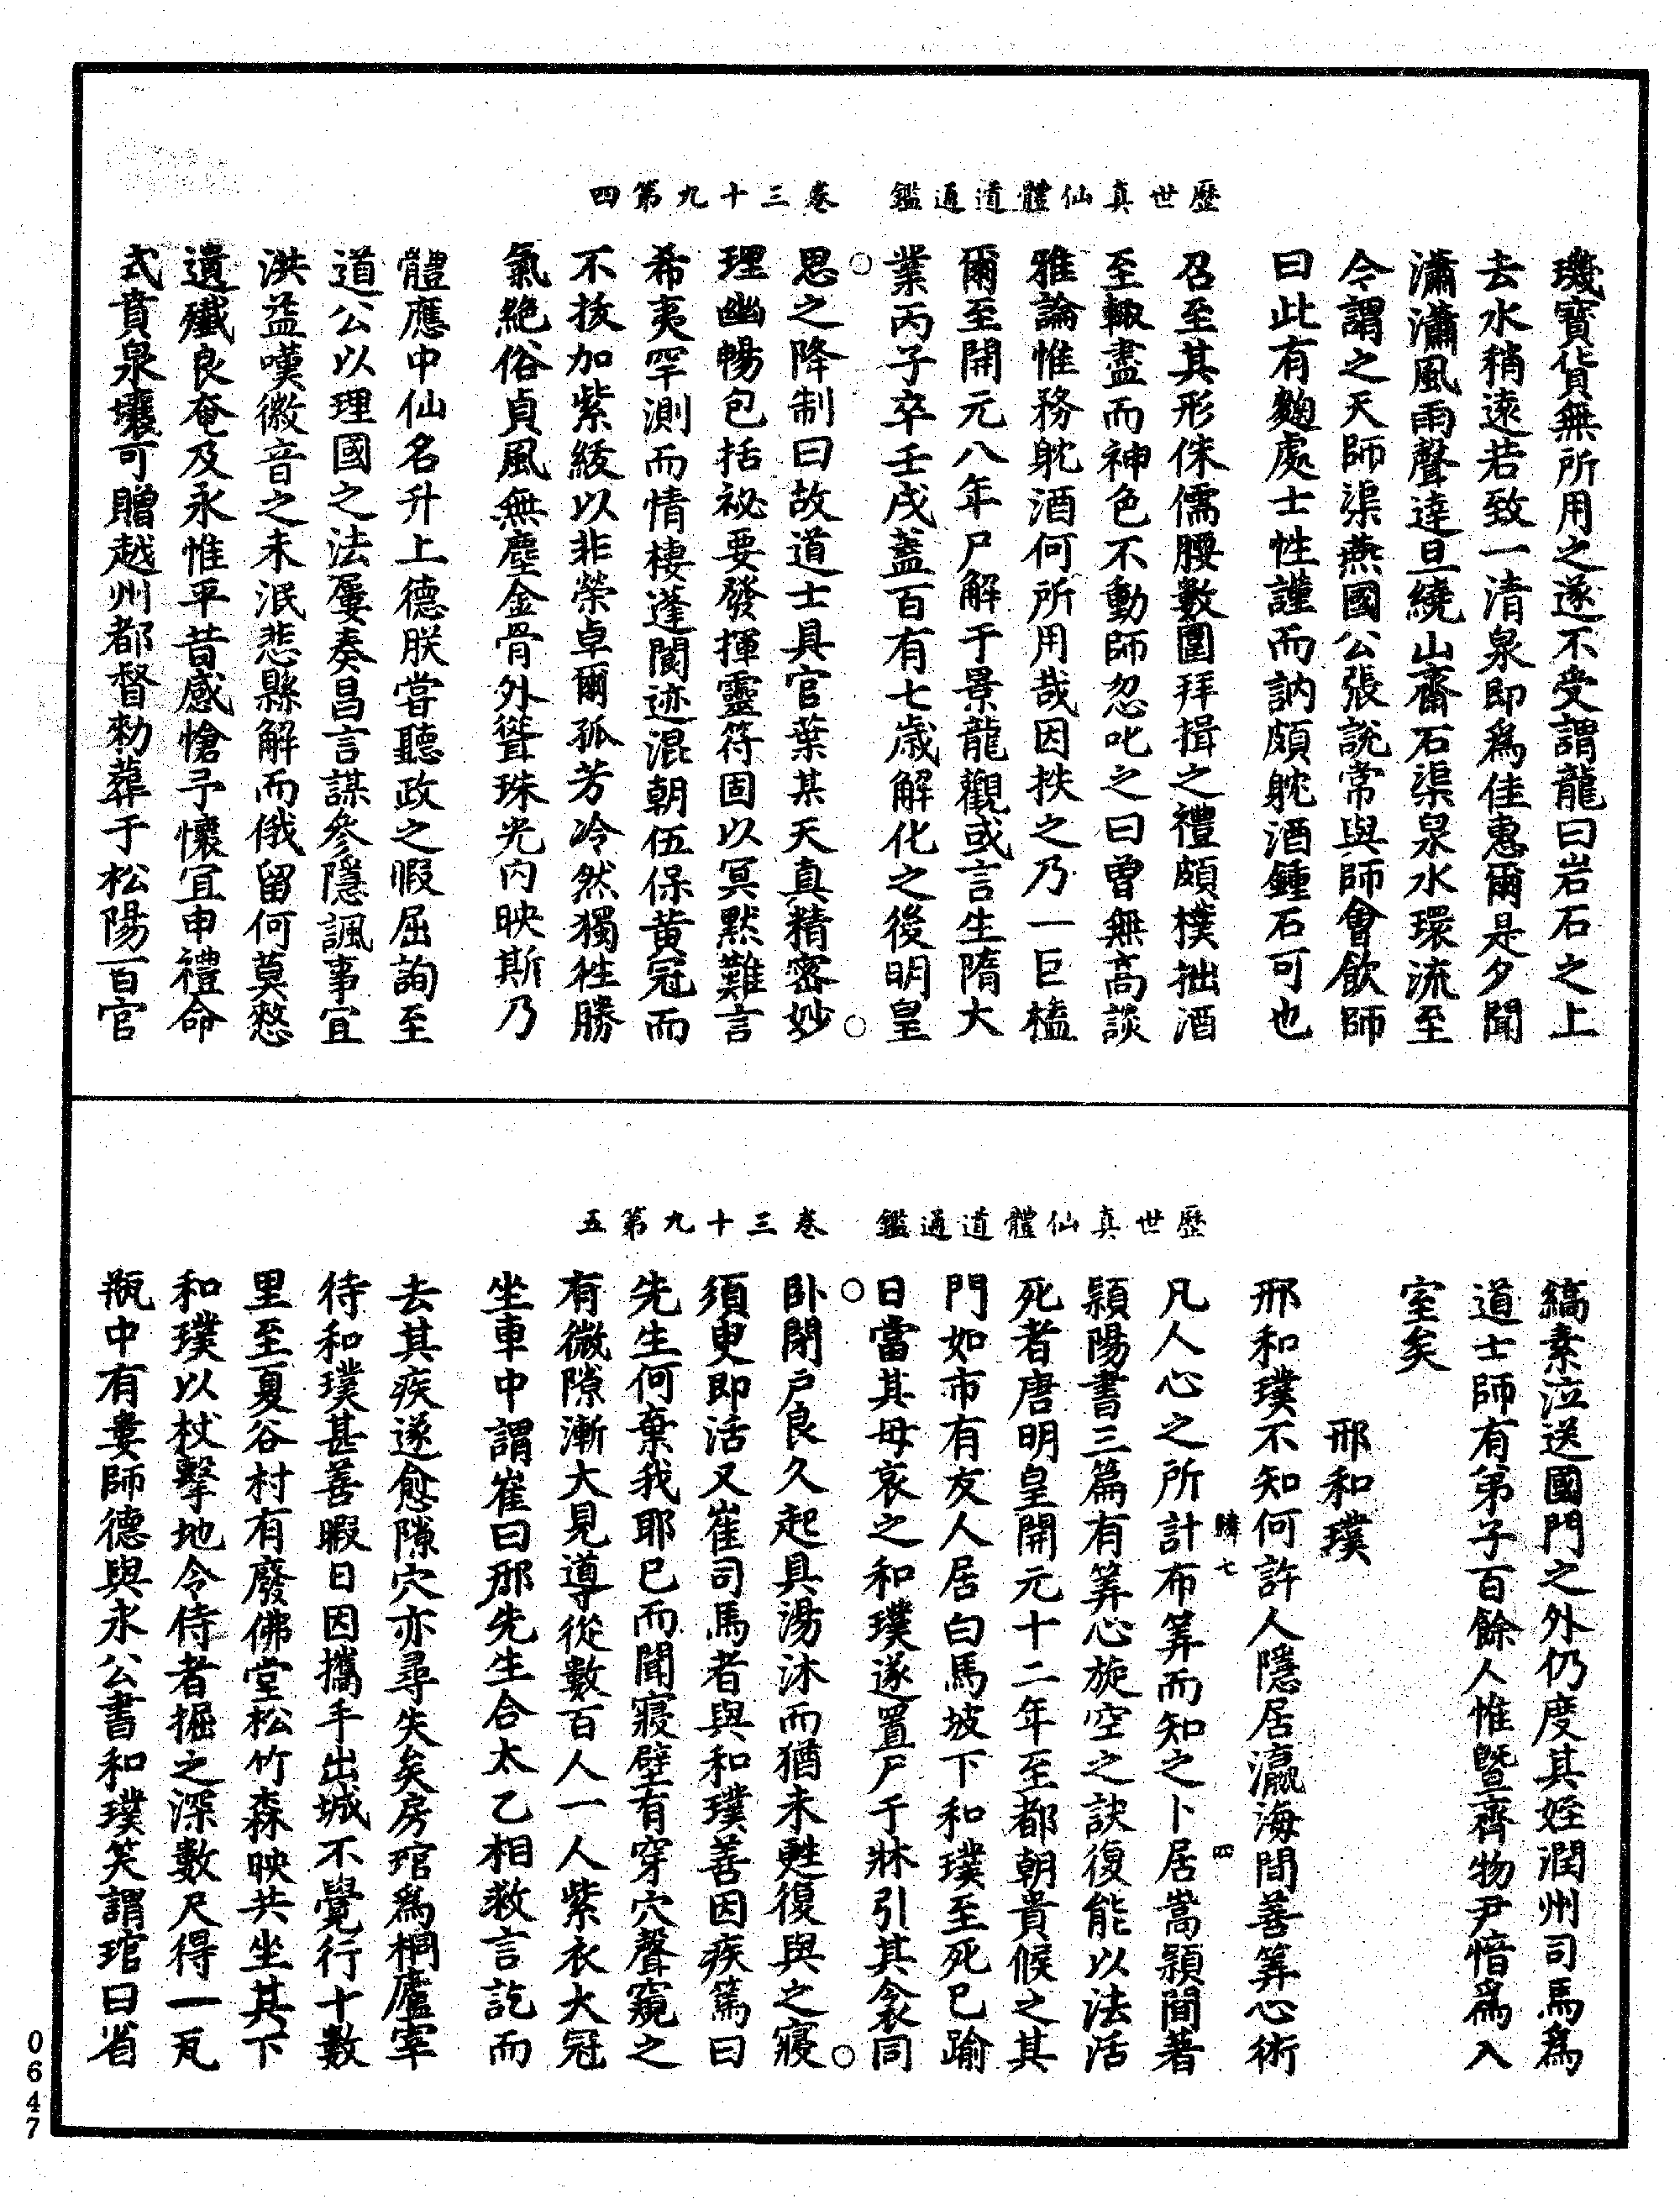 歷世真仙體道通鑑　卷三十九第四
璣寶貨無所用之遂不受謂龍曰岩石之上
去水稍遠若致一清泉即爲佳惠爾是夕聞
瀟瀟風雨聲達旦繞山齋石渠泉水環流至
今謂之天師渠燕國公張說常與師會飲師
曰此有麴處士性謹而訥頗躭酒鍾石可也
召至其形侏儒腰數圍拜揖之禮頗樸拙酒
至輙盡而神色不動師忽叱之曰曾無高談
雅論惟務躭酒何所用哉因抶之乃一巨榼
爾至開元八年尸解于景龍觀或言生隋大
業丙子卒壬戌蓋百有七歲解化之後明皇
思之降制曰故道士具官葉某天真精密妙
理幽暢包括祕要發揮靈符固以冥默難言
希夷罕測而情棲蓬閬迹混朝伍保黃冠而
不拔加紫綬以非榮卓爾孤芳冷然獨徃勝
氣絶俗貞風無塵金骨外聳珠光內映斯乃
體應中仙名升上德朕嘗聽政之暇屈詢至
道公以理國之法屢奏昌言謀參隱諷事宜
洪益嘆徽音之未泯悲縣解而俄留何莫憖
遺殲良奄及永惟平昔感愴予懷宜申禮命
式賁泉壤可贈越州都督勑葬于松陽百官
歷世真仙體道通鑑　卷三十九第五
縞素泣送國門之外仍度其姪潤州司馬爲
道士師有弟子百餘人惟暨齊物尹愔爲入
室矣
邢和璞
邢和璞不知何許人隱居瀛海間善筭心術
凡人心之所計布筭而知之卜居嵩潁間著
潁陽書三篇有筭心旋空之訣復能以法活
死者唐明皇開元十二年至都朝貴候之其
門如市有友人居白馬坡下和璞至死已踰
日當其母哀之和璞遂置尸于牀引其衾同
卧閉户良久起具湯沐而猶未甦復與之寢
須臾即活又崔司馬者與和璞善因疾篤曰
先生何棄我耶已而聞寢壁有穿穴聲窺之
有微隙漸大見導從數百人一人紫衣大冠
坐車中謂崔曰邢先生合太乙相救言訖而
去其疾遂愈隙穴亦尋失矣房琯爲桐廬宰
待和璞甚善暇日因攜手出城不覺行十數
里至夏谷村有廢佛堂松竹森映共坐其下
和璞以杖擊地令侍者掘之深數尺得一瓦
瓶中有婁師德與永公書和璞笑謂琯曰省
七
四
0647